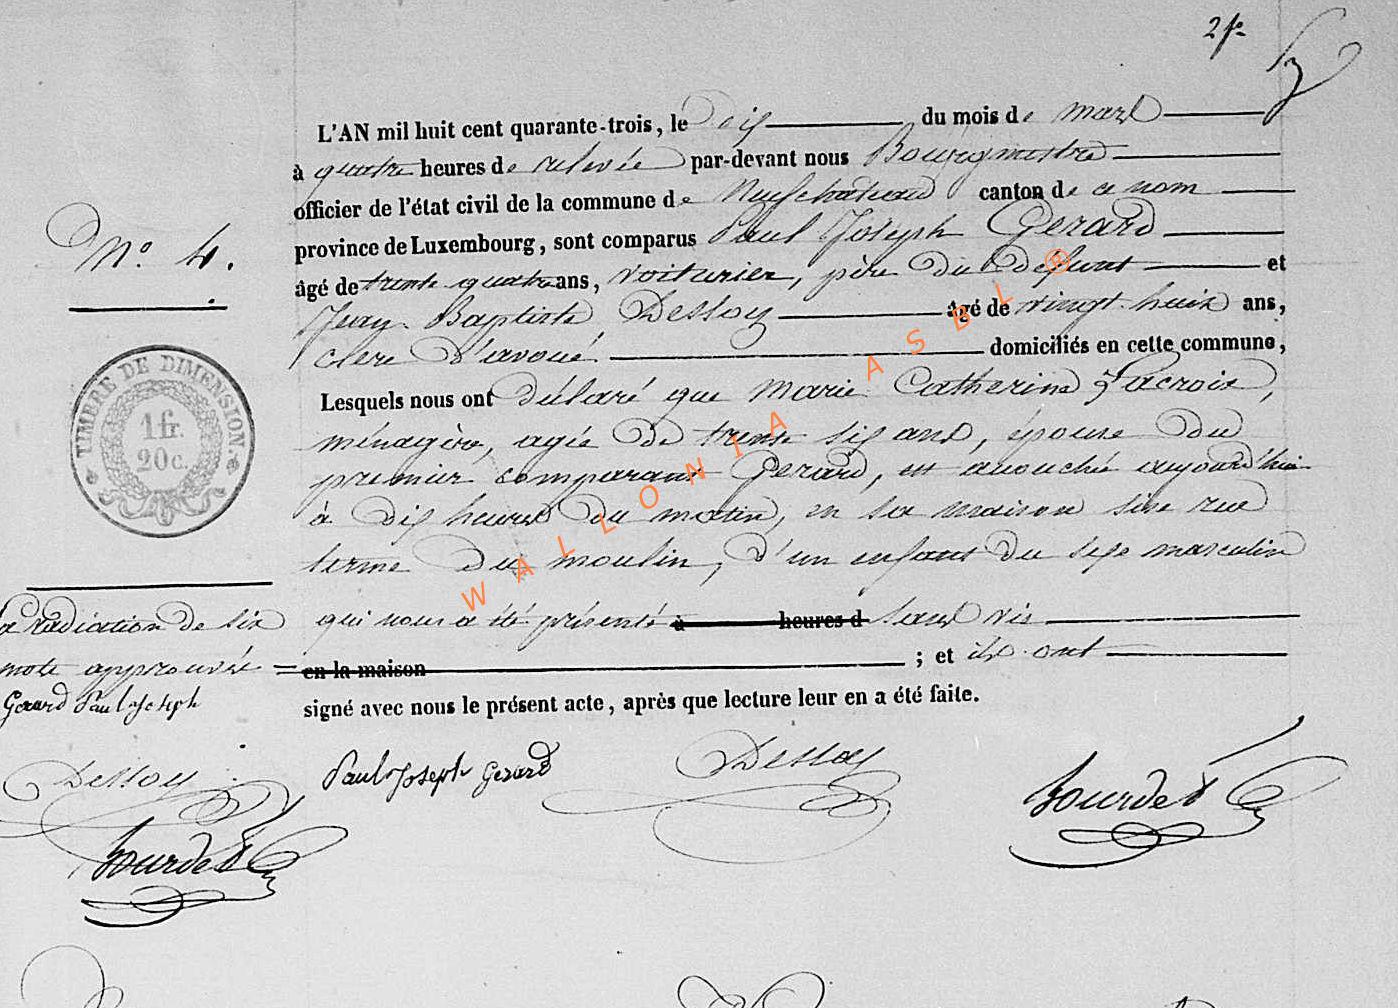 2 fo
L'AN mil huit cent quarante-trois, le Dix du mois de mars
à quatre heures de relevée par-devant nous Bourgmestre
officier de l'état civil de la commune de Neufchateau canton de ce nom
N° 4.
province de Luxembourg, sont comparus Paul Joseph Gerard
âgé de trente quatre ans, voiturier, père du defunt et
Jean Baptiste Dessoy âgé de vingt huit ans,
clerc d'avoué domiciliés en cette commune,
TIMBRE DE DIMENSION.
1 fr.
20 c.
Lesquels nous ont déclaré que Marie Catherine Lacroix,
ménagère, agée de trente six ans, épouse du
premier comparant Gerard, est accouché aujourd'hui
à dix heures du matin, en sa maison sise rue
terme du moulin, d'un enfant du sexe masculin
qui nous a été présenté à heures d sans vie
en la maison ; et ils ont
signé avec nous le présent acte, après que lecture leur en a été faite.
La radiation de six
mots approuvée
Gerard Paul Joseph
Dessoy
Bourdet
Paul Joseph Gerard
Dessoy
Bourdet
WALLONIA ASBL ®